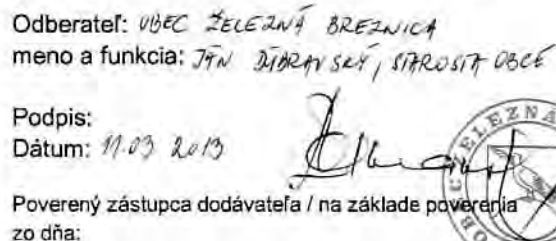 Odberateľ: OBEC ŽELEZNÁ BREZNICA
meno a funkcia: JÁN DÚBRAVSKÝ, STAROSTA OBCE
Podpis:
Dátum: 11.03 2013
OBEC ŽELEZNÁ
Poverený zástupca dodávateľa / na základe poverenia
zo dňa: